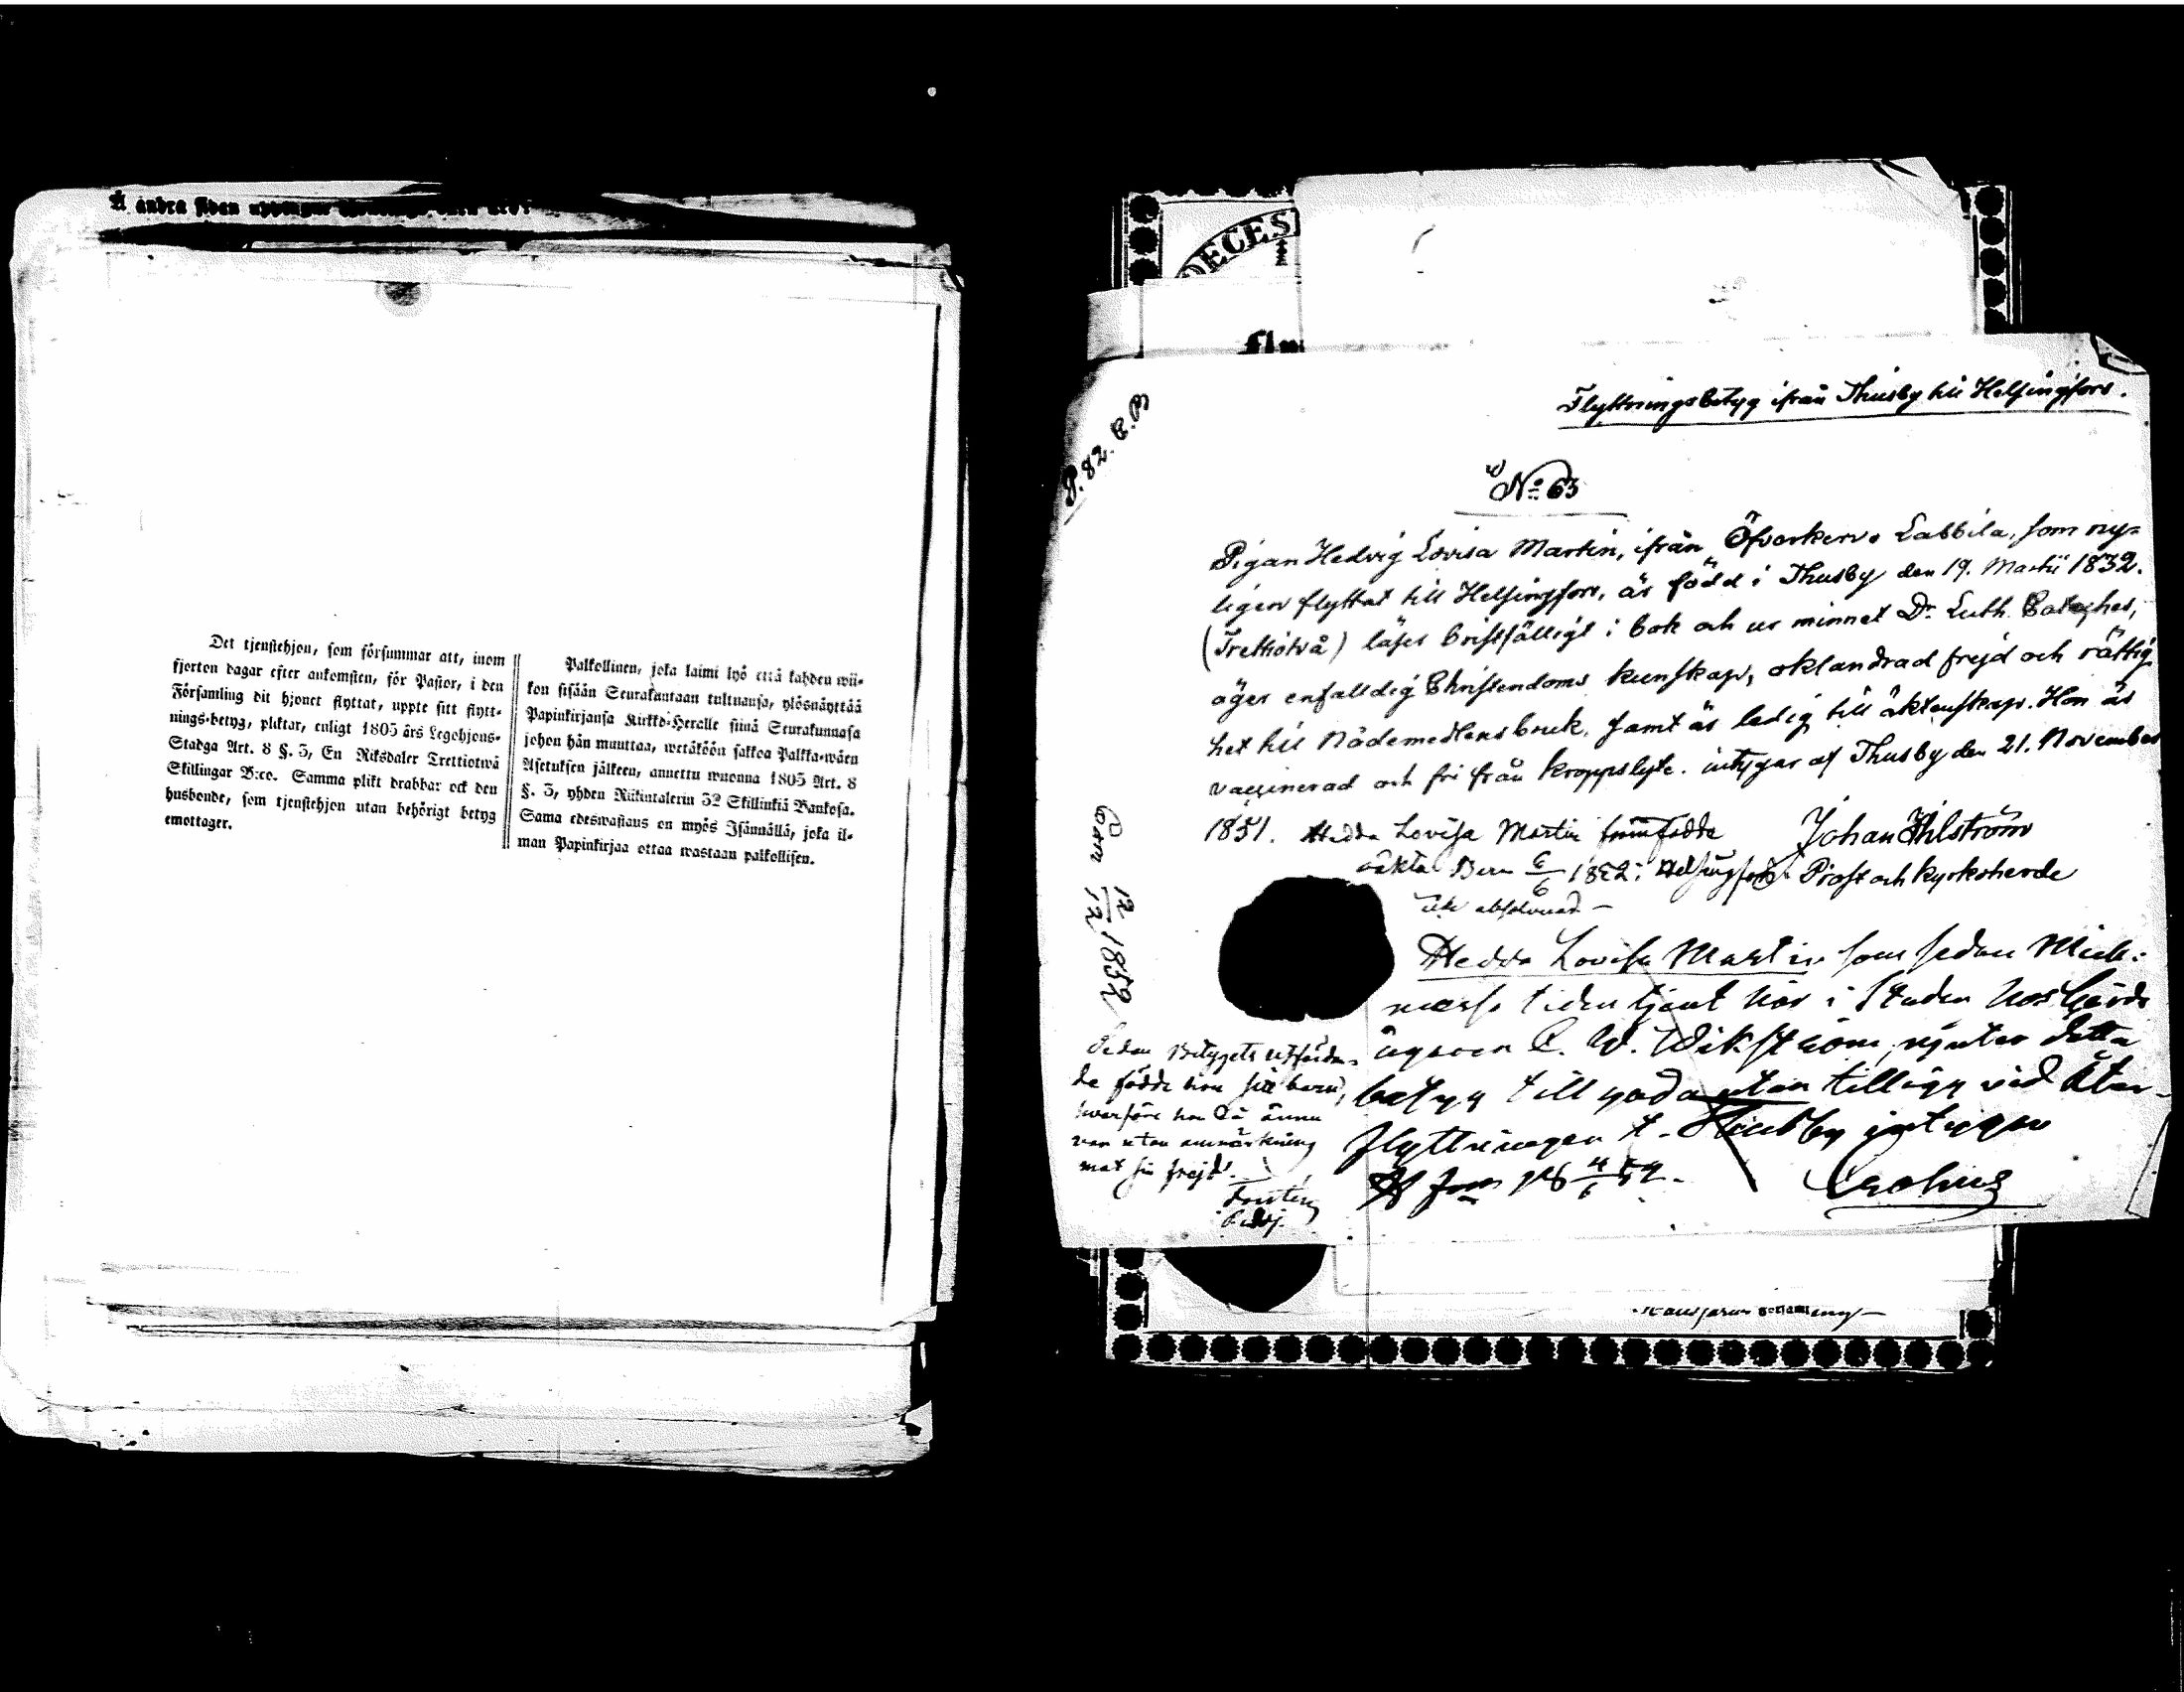 Å andra sidan
Det tjenstehjon, som försummar att, inom
fjorton dagar efter ankomsten, för Pastor, i den
Församling dit hjonet flyttat, uppte sitt flytt-
nings-betyg, pliktar, enligt 1805 års Legohjons-
Stadga Art. 8 §. 3, En Riksdaler Trettiotwå
Skillingar B:co. Samma plikt drabbar ock den
husbonde, som tjenstehjon utan behörigt betyg
emottager.
Palkollinen, joka laimi lyö että kahden wii-
kon sisään Seurakuntaan tultuansa, ylösnäyttää
Papinkirjansa Kirkko-Heralle siinä Seurakunnasa
johon hän muuttaa, wetäköön sakkoa Palkka-wäen
Asetuksen jälkeen, annettu wuonna 1805 Art. 8
§. 3, yhden Riikintalerin 32 Skillinkiä Bankosa.
Sama edeswastaus on myös Isännällä, joka il-
man Papinkirjaa ottaa wastaan palkollisen.
DECES
Flyttningsbetyg ifrån Thusby till Helsingfors.
P. 82.
No 63
Pigan Hedvig Lovisa Martin, ifrån Öfverkervo Labbila, som ny-
ligen flyttat till Helsingfors, är född i Thusby den 19. Martii 1832.
(Trettiotvå) läser bristfälligt i bok och ur minnet Dr. Luth. Cateches,
äger enfalldig Christendoms kunskap, oklandrad frejd och rättig
het till Nådemedlens bruk, samt är ledig till äktenskap. Hon är
vaccinerad och fri från kroppslyte. intygar af Thusby den 21. November
1851. Johan Ihlström
Prost och kyrkoherde
Hedda Lovisa Martin framfödde
oäkta Barn 6/6 1852 i Helsingfors
icke absolverad -
Hedda Lovisa Martin som sedan Mich-
maesse tiden tjent här i Staden hos Gårds
ägaren C. W. Wikström, njuter detta
betyg till godo utan tillägg vid Åter-
flyttningen t. Thusby intygar
H fors
Barn 12/12 1852
Sedan Betygets utfärdan-
de födde hon sitt barn,
hvarföre hon då ännu
var utan anmärkning
mot sin frejd.